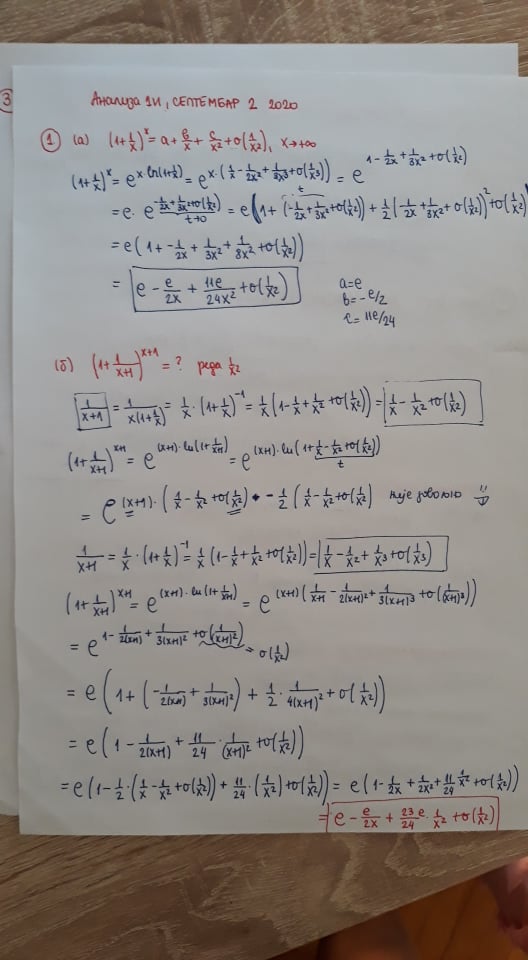 3
Анализа 1И, СЕПТЕМБАР 2 2020
① (а) (1+1/x)^x = a + b/x + c/x² + o(1/x²), x→+∞
(1+1/x)^x = e^(x·ln(1+1/x)) = e^(x·(1/x - 1/2x² + 1/3x³ + o(1/x³))) = e^(1 - 1/2x + 1/3x² + o(1/x²))
= e · e^(-1/2x + 1/3x² + o(1/x²)) t→0 = e(1 + (-1/2x + 1/3x² + o(1/x²)) t + 1/2(-1/2x + 1/3x² + o(1/x²))² + o(1/x²)
= e(1 + -1/2x + 1/3x² + 1/8x² + o(1/x²))
= e - e/2x + 11e/24x² + o(1/x²) a=e
b=-e/2
c=11e/24
(б) (1+1/(x+1))^(x+1) = ? реда 1/x²
1/(x+1) = 1/(x(1+1/x)) = 1/x·(1+1/x)^-1 = 1/x(1 - 1/x + 1/x² + o(1/x²)) = 1/x - 1/x² + o(1/x²)
(1+1/(x+1))^(x+1) = e^((x+1)·ln(1+1/(x+1))) = e^((x+1)·ln(1+1/x - 1/x² + o(1/x²))) t
= e^((x+1)·(1/x - 1/x² + o(1/x²)) - 1/2(1/x - 1/x² + o(1/x²)) није довољно
1/(x+1) = 1/x·(1+1/x)^-1 = 1/x(1 - 1/x + 1/x² + o(1/x²)) = 1/x - 1/x² + 1/x³ + o(1/x³)
(1+1/(x+1))^(x+1) = e^((x+1)·ln(1+1/(x+1))) = e^((x+1)(1/(x+1) - 1/2(x+1)² + 1/3(x+1)³ + o(1/(x+1)³))
= e^(1 - 1/2(x+1) + 1/3(x+1)² + o(1/(x+1)²)) = o(1/x²)
= e(1 + (-1/2(x+1) + 1/3(x+1)²) + 1/2 · 1/4(x+1)² + o(1/x²))
= e(1 - 1/2(x+1) + 11/24 · 1/(x+1)² + o(1/x²))
= e(1 - 1/2·(1/x - 1/x² + o(1/x²)) + 11/24·(1/x²) + o(1/x²)) = e(1 - 1/2x + 1/2x² + 11/24 1/x² + o(1/x²))
= e - e/2x + 23/24 e · 1/x² + o(1/x²)